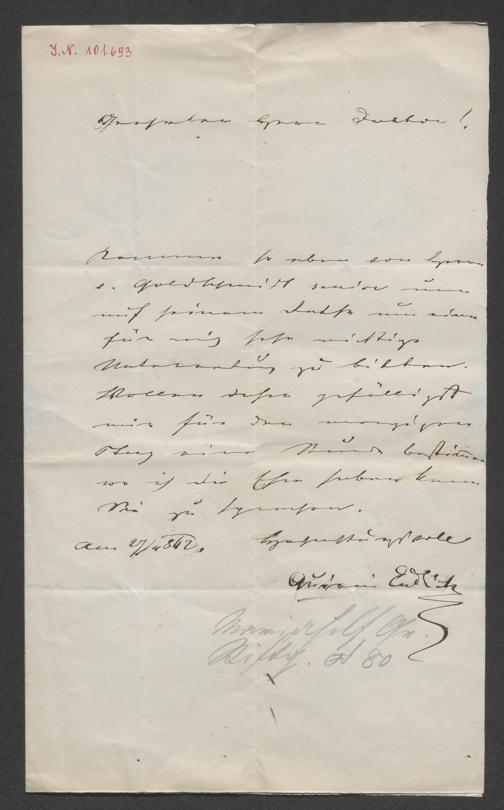 J.N. 101.693
Geehrter Herr Doktor!
Komme so eben von Herrn
v. Goldschmidt senior um
auf seinen Rath um eine
für mich sehr wichtige
Unterredung zu bitten.
Wollen daher gefälligst
mir für den morgigen
Tag eine Stunde bestimmen
wo ich die Ehre haben kann
Sie zu sprechen.
am 27/ 862. Hochachtungsvoll
Quirin Endlich
Mariahilf Gr.
80